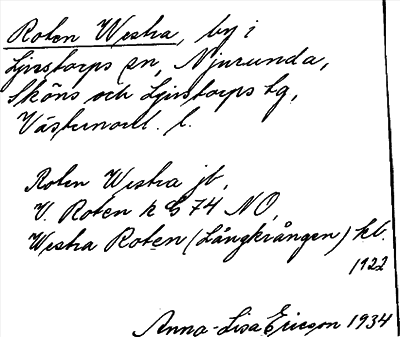 Roten Westra, by i
Ljustorps sn, Njurunda,
Sköns och Ljustorps tg,
Västernorrl. l.
Roten Westra jb,
V. Roten k G 74 NO,
Westra Roten (Långkrången) kb.
1922
Anna-Lisa Ericson 1934